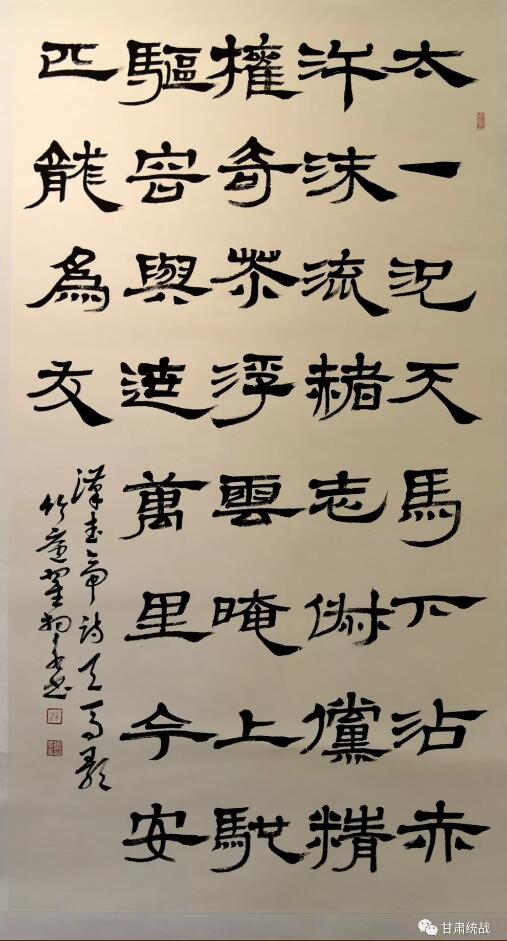 太一況天馬下沾赤
汗沫流赭志俶儻精
權奇苶浮雲晻上馳
驅容與迣萬里今安
匹龍為友
漢武帝詩天馬歌
竹庵翟相永書
甘肃统战